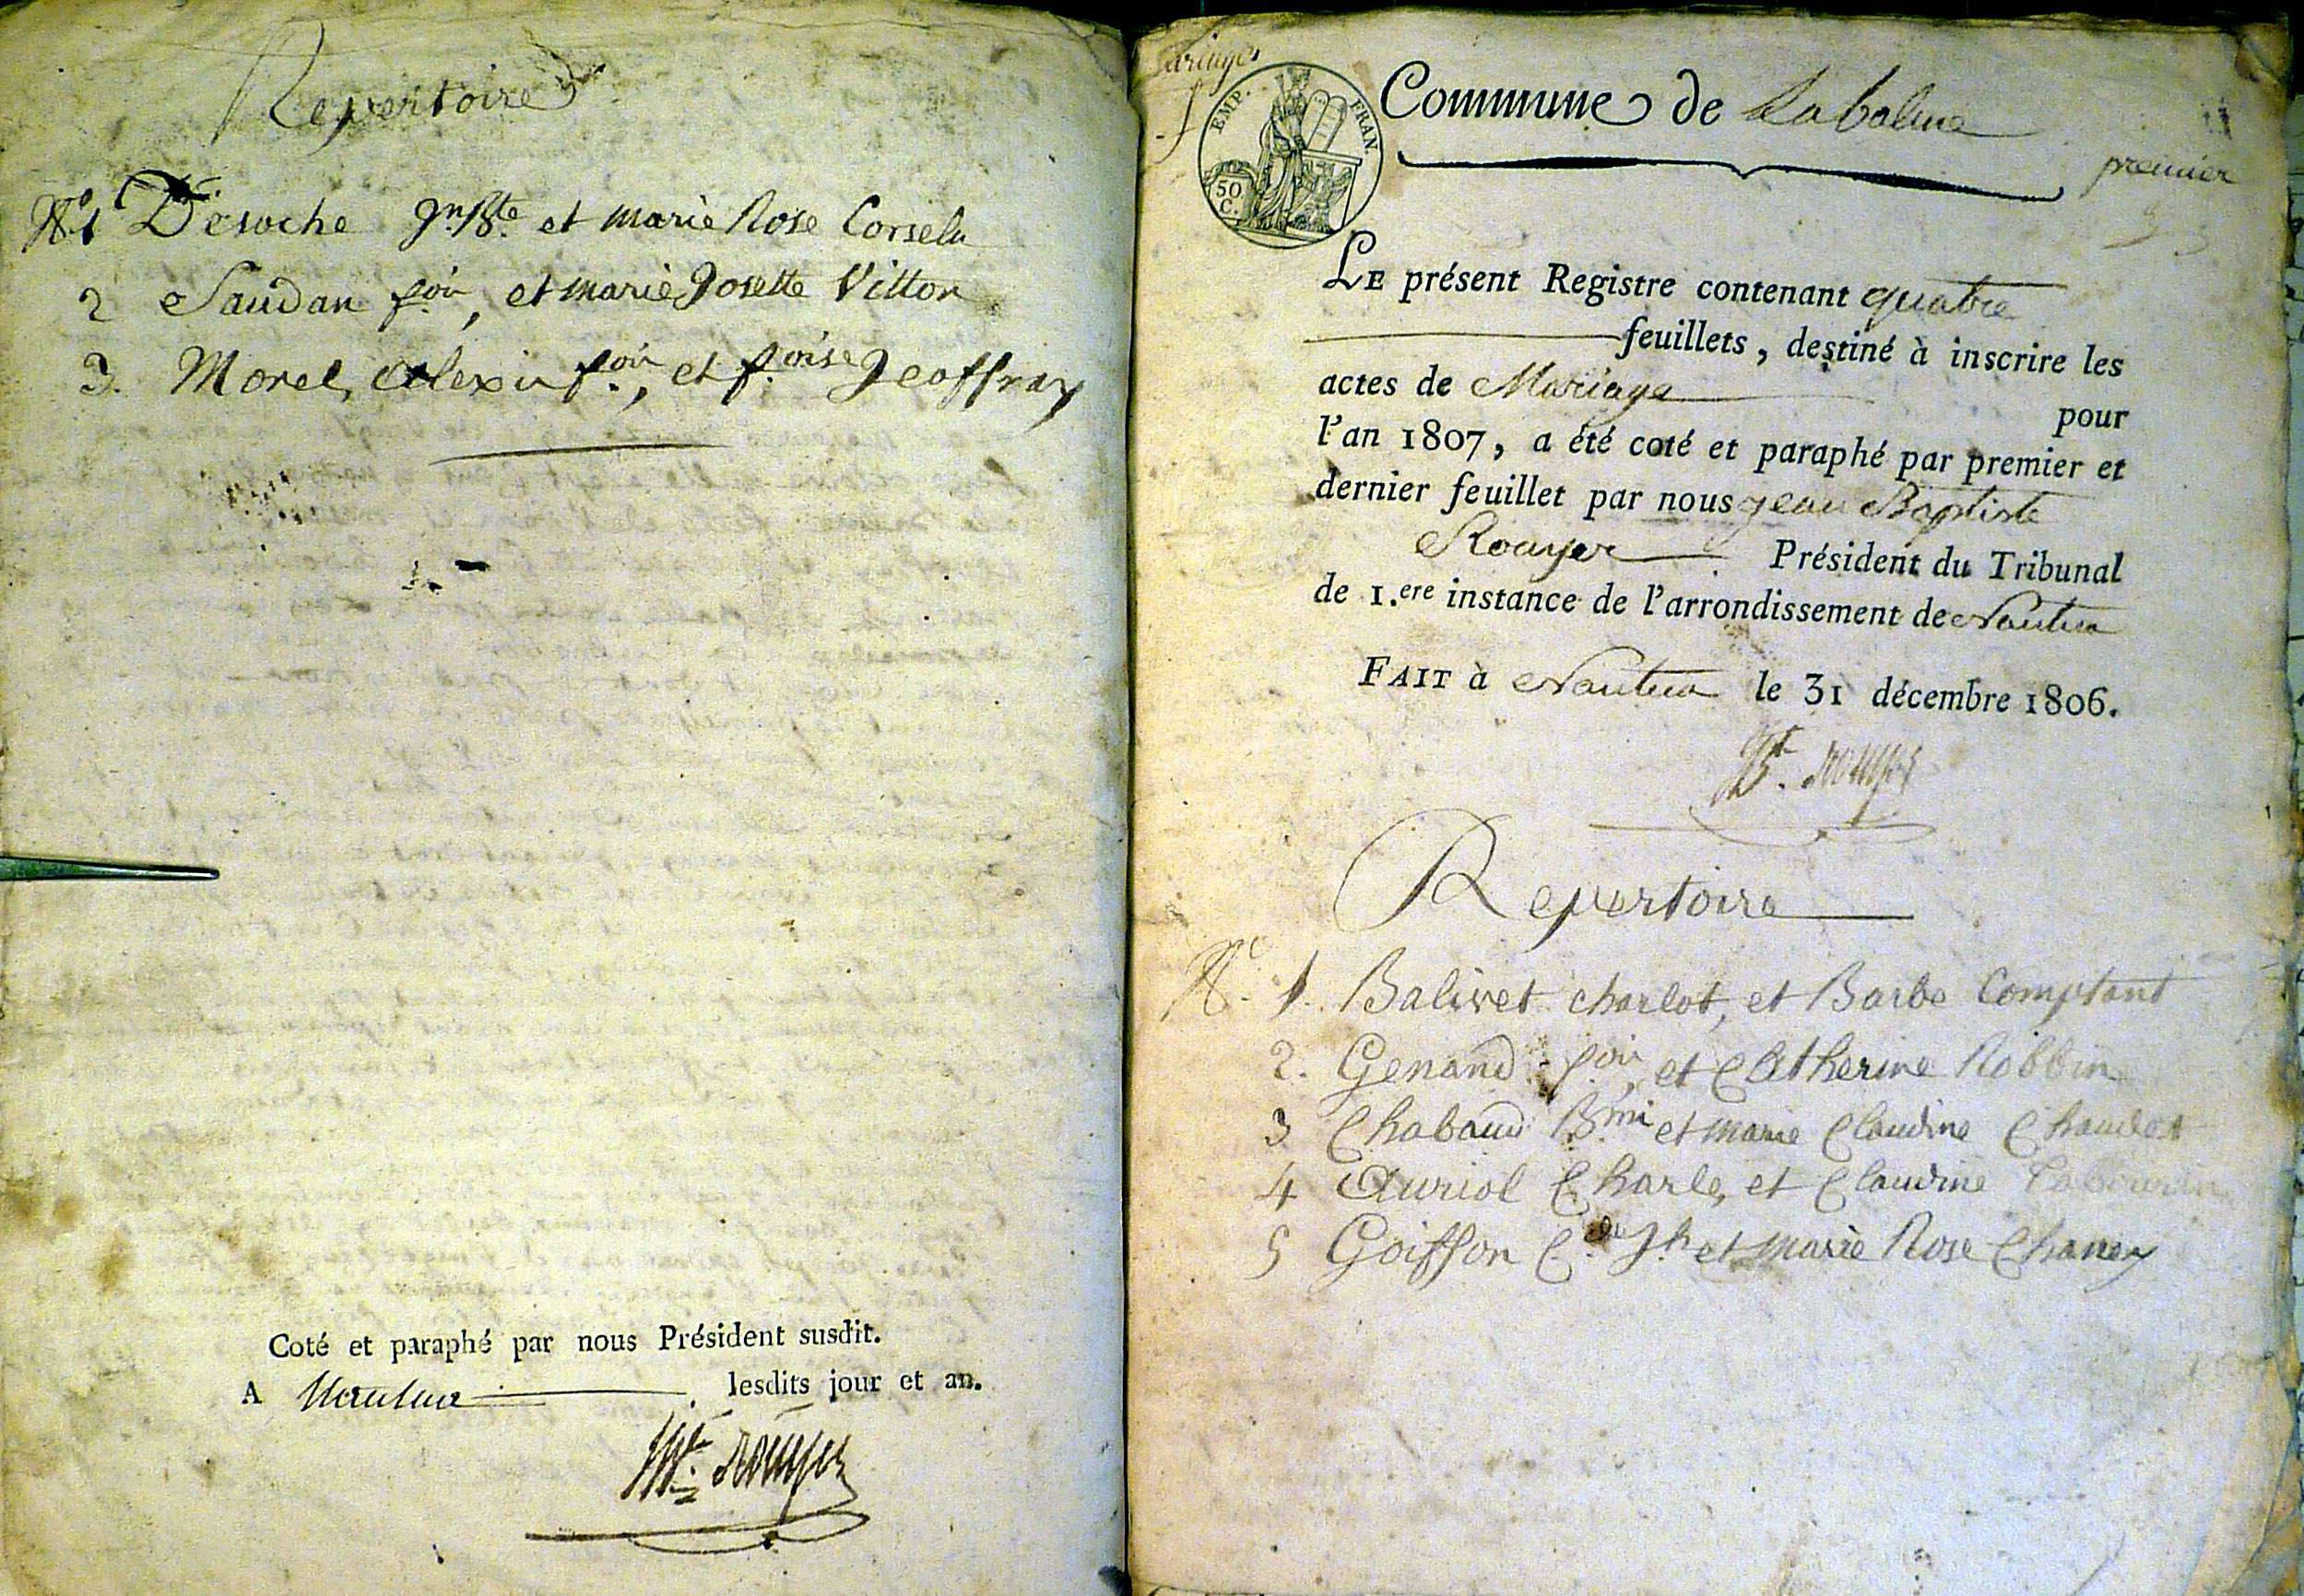 Repertoire
N.º 1 Desoche Jn. Bte. et marie Rose
2 Saudan f.ois, et marie Josette Vitton
3. Morel, Alexis f.ois, et f.oise Jeoffray
Coté et paraphé par nous Président susdit.
A Nantua lesdits jour et an.
Bt. rouyer
Mariages
EMP. FRAN.
50
C.
Commune de Labalme
premier
LE présent Registre contenant quatre
feuillets, destiné à inscrire les
actes de Mariage pour
l'an 1807, a été coté et paraphé par premier et
dernier feuillet par nous jean Baptiste
Rouyer Président du Tribunal
de 1.ere instance de l'arrondissement de Nantua
FAIT à Nantua le 31 décembre 1806.
Bt. rouyer
Repertoire
N.º 1. Balivet charlot, et Barbe Comptant
2. Genand f.ois, et Catherine Robbin
3 Chabaud B.mi et marie Claudine Chaudet
4 Auriol Charle, et Claudine
5 Goiffon C.de Jh. et marie Rose Chanay